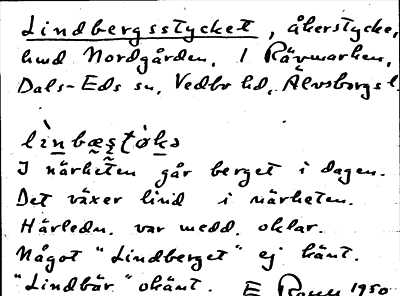 Lindbergsstycket, åkerstycke,
hmd Nordgården, 1 Rävmarken,
Dals-Eds sn, Vedbo hd, Älvsborgs l
lìnbæs̯tòkə
I närheten går berget i dagen.
Det växer lind i närheten.
Härledn. var medd. oklar.
Något "Lindberget" ej känt.
"Lindbär" okänt. E 1950